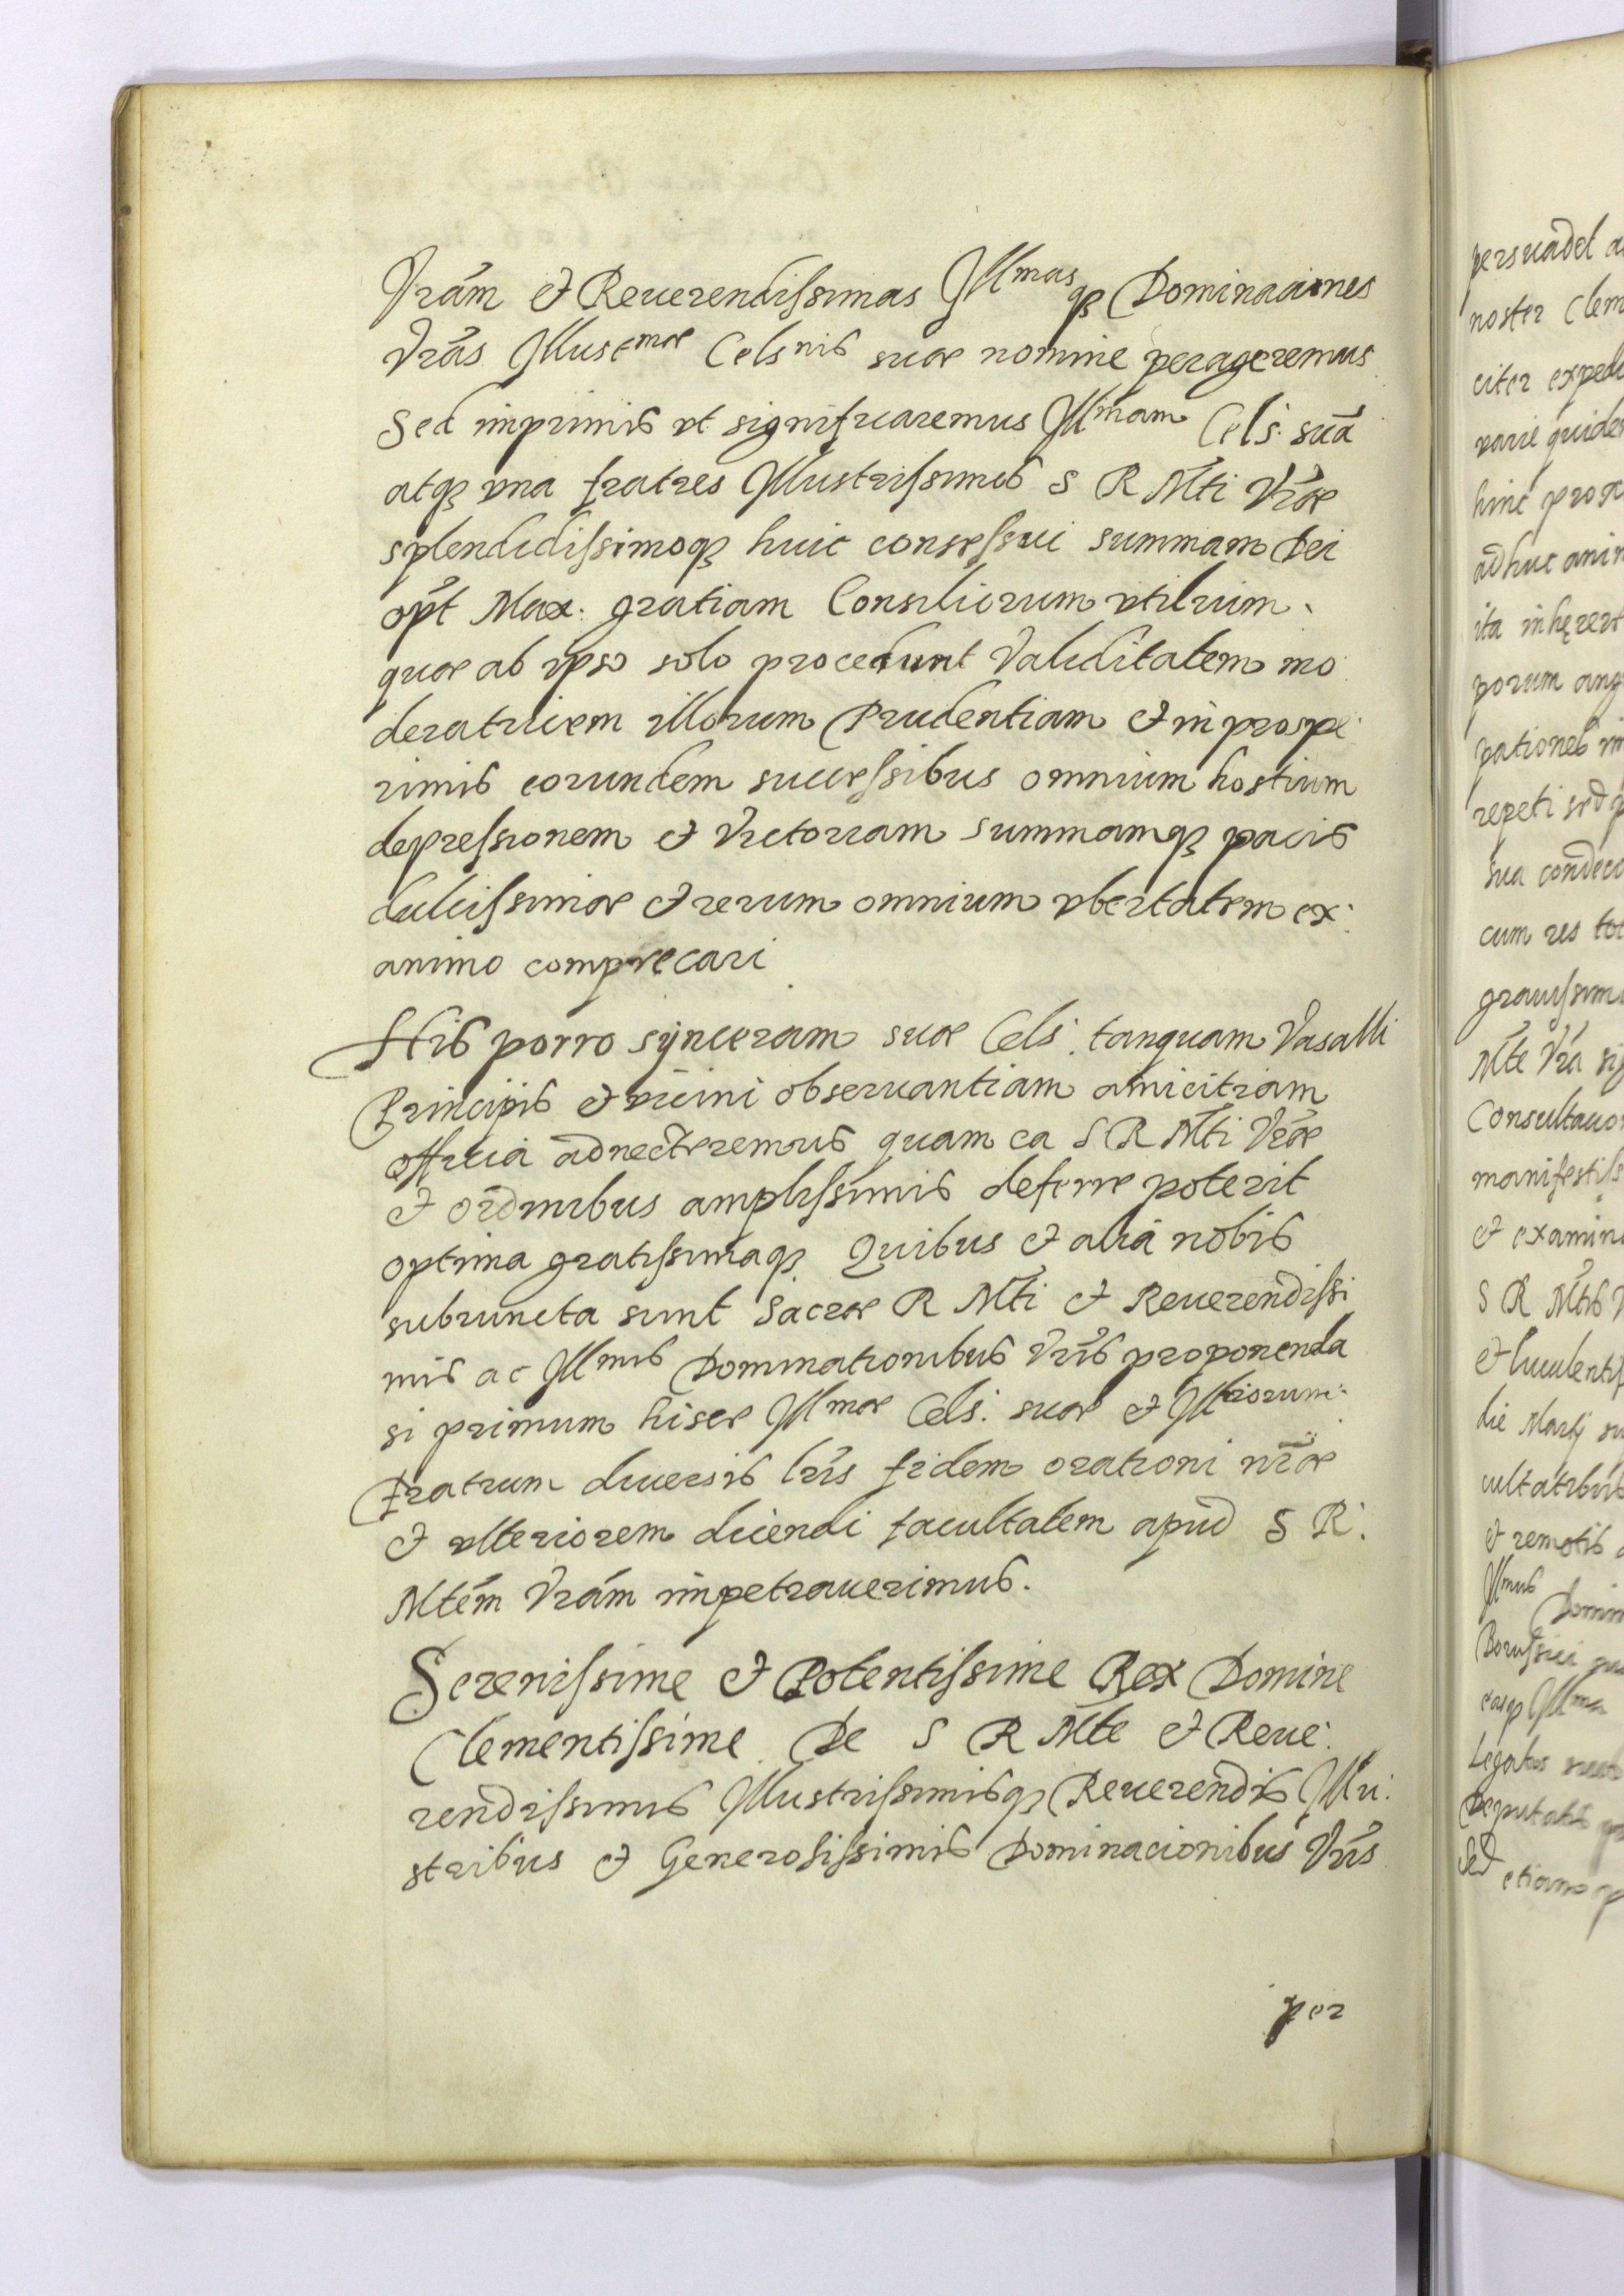 Vrãm et Reuerendissimas Jllmas qȝ Dominaciones
Vrãs Jllustmae Celsnis suae nomine perageremus
Sed imprimis vt significaremus Jllmam Cels: suã
atqȝ vna fratres Jllustrissimos S R Mti Vrae
splendidissimoqȝ huic consessui summam Dei
opt Max: gratiam Consiliorum vtilium
quae ab ipso solo procedunt Validitatem mo
deratricem illorum Prudentiam et in prospe:
rimis eorundem successibus omnium hostium
depressionem et Victoriam summamqȝ pacis
dulcissimae et rerum omnium vbertatem ex:
animo comprecari
His porro synceram suae Cels: tanquam Vasalli
Principis et vicini obseruantiam amicitiam
officia adnecteremus quam ea S R Mti Vrae
et ordinibus amplissimis deferre poterit
optima gratissimaqȝ. Quibus et alia nobis
subiuncta sunt Sacrae R Mti et Reuerendissi
mis ac Jllmis Dominationibus Vris proponenda
si primum hisce Jllmae Cels: suae et Jllriorum:
fratrum diuersis lris fidem orationi nrae
et vlteriorem dicendi facultatem apud S R:
Mtem Vram impetrauerimus.
Serenissime et Potentissime Rex Domine
Clementissime De S R Mte et Reue:
rendissimis Jllustrissimisqȝ Reuerendis Jllu:
stribus et Generosissimis Dominacionibus Vris
per
persuadet
noster
citer
varie
hinc
adhuc
ita inhęret
porum
pationes
repeti sed
sua
cum res
Mte Vra
et
S R Mtis
die Martij
et remotis
Jllmus
Legatos
Sed
etiam